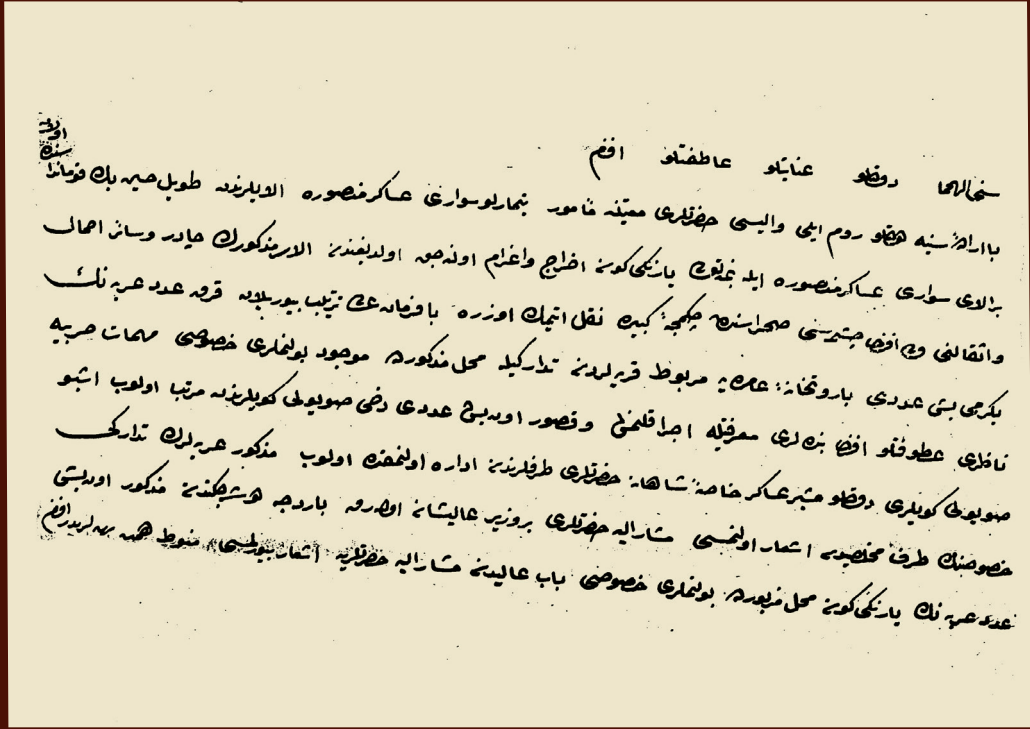 سنى الهمما دولتلو عنايتلو عاطفتلو افندم
با ارادهٔ سنيه دولتلو روم ايلى واليسى حضرتلرى معيتنه مأمور تيمارلو سوارى عساكر منصوره الايلرندن طويل حسين بك قوماندا
بر الاى سوارى عساكر منصوره ايله يارنكى كون اخراج واعزام اولنه جق اولديغندن الاى مذكورك چادر وسائر احمال
واثقالنى صحراسندن چكمجهٔ كبيره نقل ايتمك اوزره با فرمان عالى ترتيب بيوريلان قرق عدد عربه نك
يكرمى بش عددى باروتخانهٔ عامره يه مربوط قريه لردن تداركيله محل مذكورده موجود بولنملرى خصوصى مهمات حربيه
ناظرى عطوفتلو افندى بنده لرى معرفتيله اجرا قلنمش وقصور اون بش عددى دخى صويولى كويلرندن مرتب اولوب اشبو
صويولى كويلرى دولتلو مشير عساكر خاصهٔ شاهانه حضرتلرى طرفلرندن اداره اولنمقده اولوب مذكور عربه لرك تداركى
خصوصنك طرف مخلصيدن اشعار اولنمسى مشاراليه حضرتلرى بر وزير عاليشان اوله رق مذكور اون بش
عدد عربه نك يارنكى كون محل مزبورده بولنملرى خصوصى باب عاليدن مشاراليه حضرتلرينه اشعار بيورلمسى منوط افندم